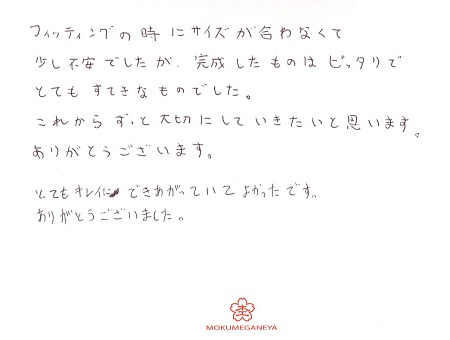 フィッティングの時にサイズが合わなくて
少し不安でしたが、完成したものはピッタリで
とてもすてきなものでした。
これからずっと大切にしていきたいと思います。
ありがとうございます。
とてもキレイに できあがっていてよかったです。
ありがとうございました。
MOKUMEGANEYA